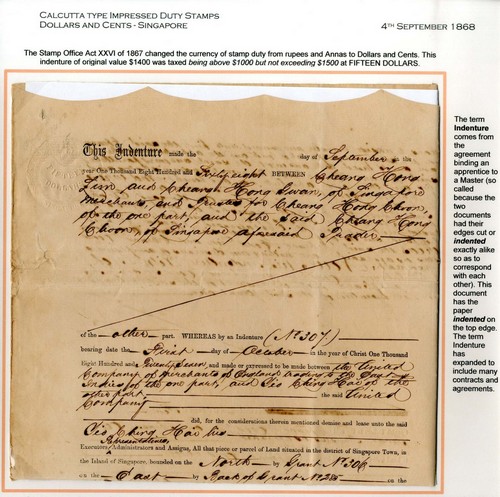 CALCUTTA TYPE IMPRESSED DUTY STAMPS
DOLLARS AND CENTS - SINGAPORE
4TH SEPTEMBER 1868
The Stamp Office Act XXVI of 1867 changed the currency of stamp duty from rupees and Annas to Dollars and Cents. This
indenture of original value $1400 was taxed being above $1000 but not exceeding $1500 at FIFTEEN DOLLARS.
This Indenture made the day of September in the
year One Thousand Eight Hundred and Sixty eight BETWEEN Cheang Hong
Lim and Cheang Hong Guan, of Singapore
Merchants and Trustees for Cheang Hong Choon,
of the one part, and the said Cheang Hong
Choon, of Singapore aforesaid Trader
of the other part. WHEREAS by an Indenture (No 307)
bearing date the First day of October in the year of Christ One Thousand
Eight Hundred and Twenty Seven, and made or expressed to be made between the United
Company of Merchants of England trading to the East
Indies of the one part and Seo Ching Hai of the
other part the United
Company
did, for the considerations therein mentioned demise and lease unto the said
Seo Ching Hai his
Representatives
Executors Administrators and Assigns, All that piece or parcel of Land situated in the district of Singapore Town, in
the Island of Singapore, bounded on the North by Grant No 306
on the East by Back of Grant No 285 on the
The term
Indenture
comes from
the
agreement
binding an
apprentice to
a Master (so
called
because the
two
documents
had their
edges cut or
indented
exactly alike
so as to
correspond
with each
other). This
document
has the
paper
indented on
the top edge.
The term
Indenture
has
expanded to
include many
contracts and
agreements.